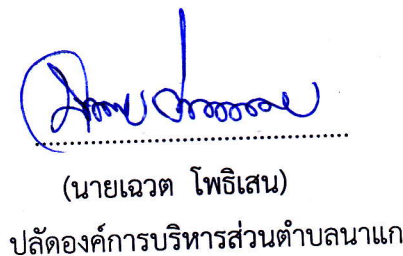 (นายเฉวต โพธิเสน)
ปลัดองค์การบริหารส่วนตำบลนาแก